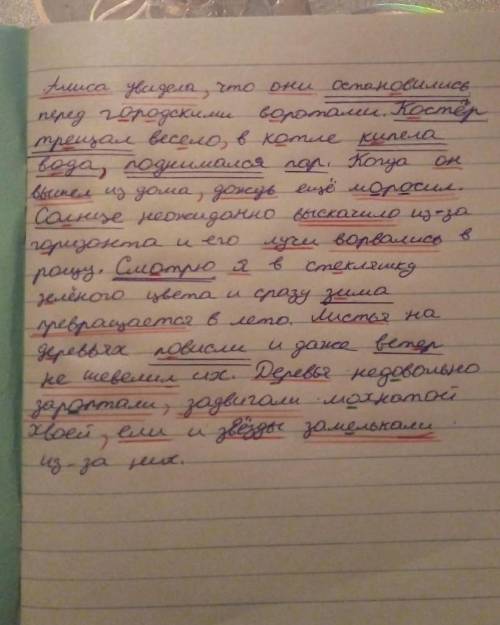 Алиса увидела, что они остановились
перед городскими воротами. Костёр
трещал весело, в котле кипела
вода, поднимался пар. Когда он
вышел из дома, дождь ещё моросил.
Солнце неожиданно выскачило из-за
горизонта и его лучи ворвались в
рощу. Смотрю я в стекляшку
зелёного цвета и сразу зима
превращается в лето. Листья на
деревьях повисли и даже ветер
не шевелил их. Деревья недовольно
зароптали, задвигали мохнатой
хвоей, ели и звёзды замелькали
из-за них.